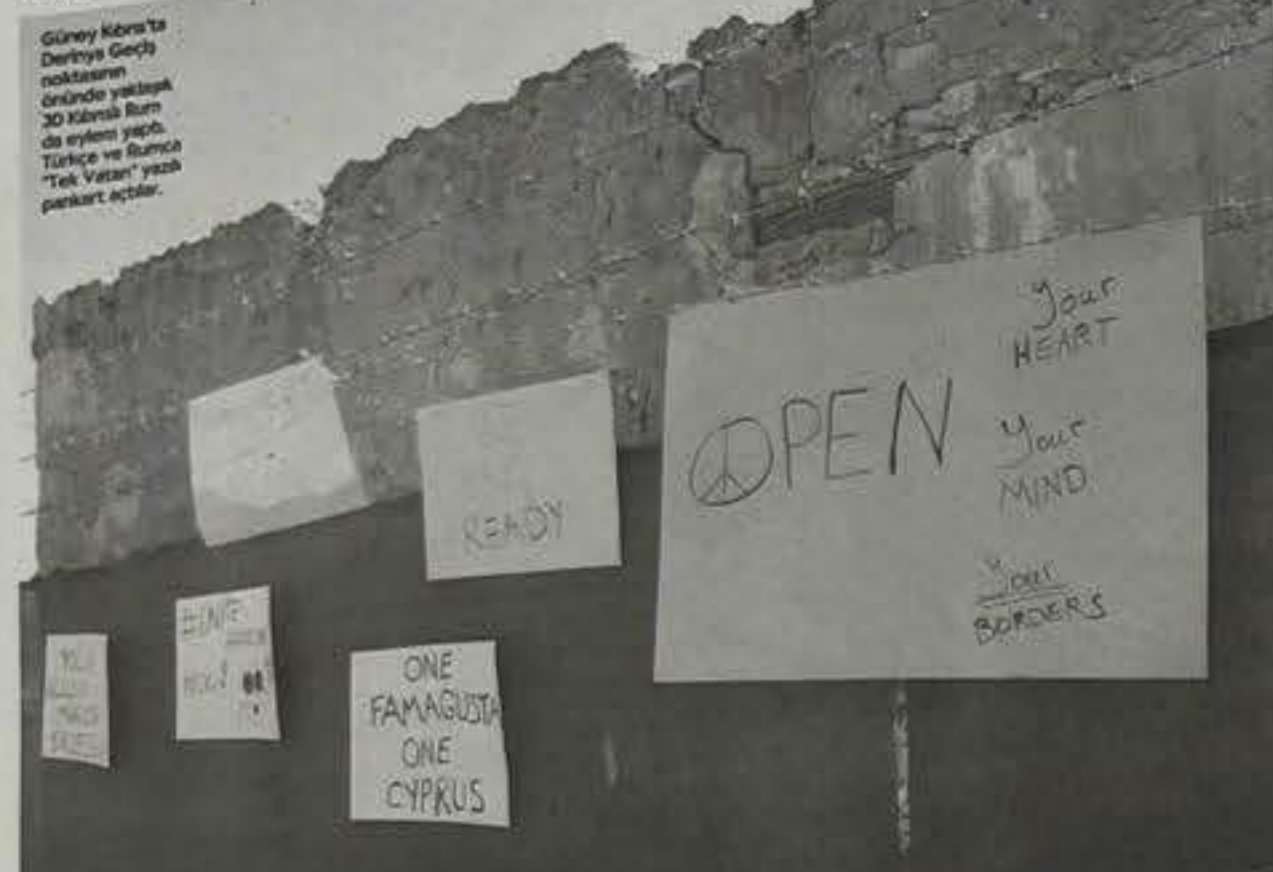 Güney Kıbrıs'ta
Derinya Geçiş
noktasının
önünde yaklaşık
30 Kıbrıslı Rum
da eylem yaptı.
Türkçe ve Rumca
"Tek Vatan" yazılı
pankart açtılar.
READY
OPEN
Your
HEART
Your
MIND
Your
BORDERS
ONE
FAMAGUSTA
ONE
CYPRUS